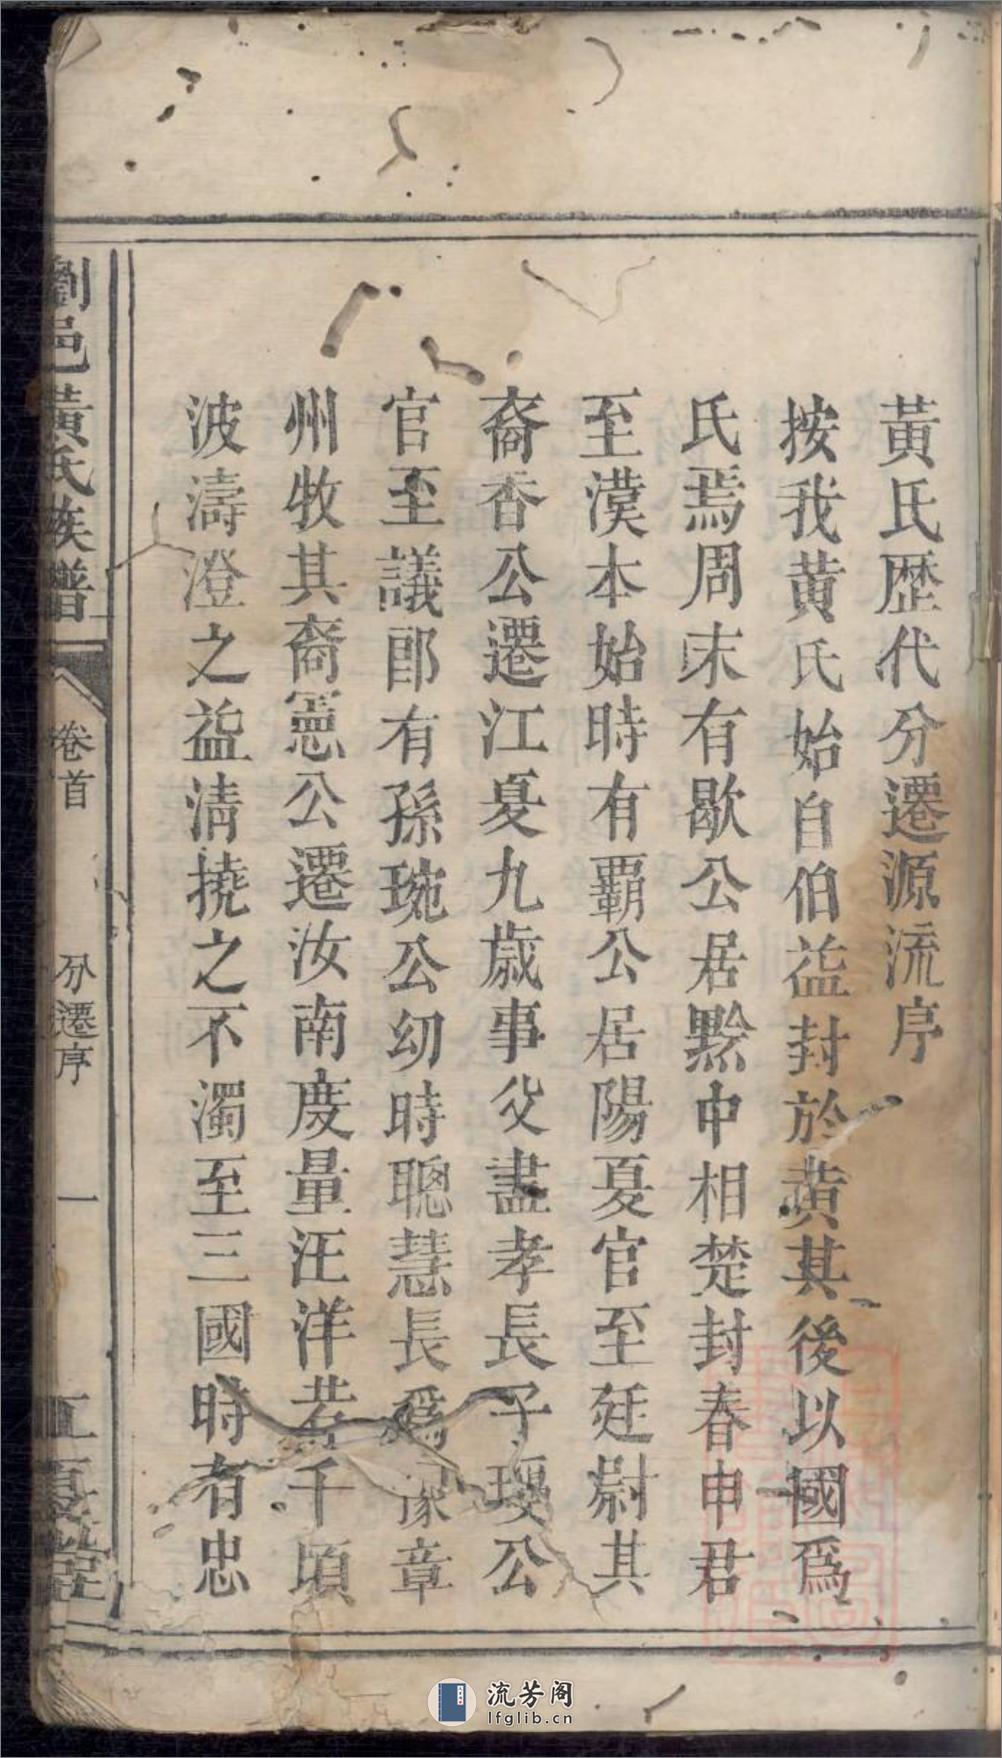 黃氏歴代分遷源流序
按我黄氏始自伯益封於黄其後以國爲
氏焉周末有歇公居黔中相楚封春申君
至漢本始時有覇公居陽夏官至廷尉其
裔香公遷江夏九歲事父盡孝長子瓊公
官至議郎有孫琬公幼時聰慧長爲豫章
州牧其裔憲公遷汝南度量汪洋若千頃
波濤澄之益清撓之不濁至三國時有忠
劉邑黃氏族譜
卷首
分遷序
一
江夏堂
流芳阁
lfglib.cn